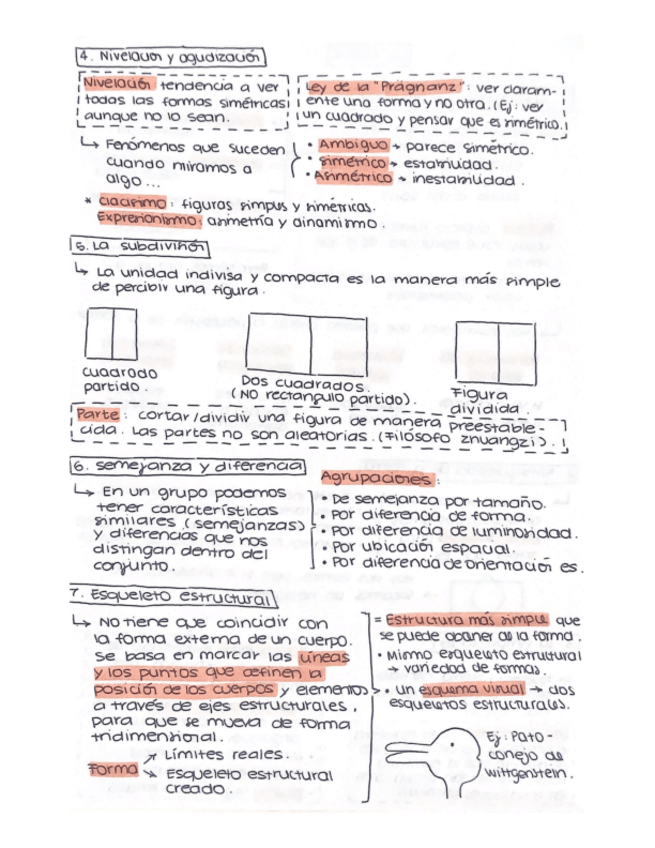 4. Nivelación y agudización
Nivelación tendencia a ver
todas las formas simétricas
aunque no lo sean.
Ley de la "Prägnanz": ver claram-
ente una forma y no otra. (Ej: ver
un cuadrado y pensar que es simétrico.)
↳ Fenómenos que suceden
cuando miramos a
algo...
• Ambiguo → parece simétrico.
• Simétrico → estabilidad.
• Asimétrico → inestabilidad.
* Clacisimo: figuras simples y simétricas.
Expresionismo: asimetría y dinamismo.
5. La subdivisión
↳ La unidad indivisa y compacta es la manera más simple
de percibir una figura.
cuadrado
partido.
Dos cuadrados.
(NO rectangulo partido).
Figura
dividida.
Parte: cortar/dividir una figura de manera preestable-
cida. Las partes no son aleatorias. (Filósofo Zhuangzi).
6. Semejanza y diferencia
↳ En un grupo podemos
tener características
similares (semejanzas)
y diferencias que nos
distingan dentro del
conjunto.
Agrupaciones:
• De semejanza por tamaño.
• Por diferencia de forma.
• Por diferencia de luminosidad.
• Por ubicación espacial.
• Por diferencia de orientación es.
7. Esqueleto estructural
↳ No tiene que coincidir con
la forma externa de un cuerpo.
Se basa en marcar las líneas
y los puntos que definen la
posición de los cuerpos y elementos
a través de ejes estructurales,
para que se mueva de forma
tridimensional.
Forma
↗ Límites reales.
↘ Esqueleto estructural
creado.
= Estructura más simple que
se puede obtener de la forma.
• Mismo esqueleto estructural
→ variedad de formas.
• Un esquema visual → dos
esqueletos estructurales.
Ej: Pato-
conejo de
Wittgenstein.